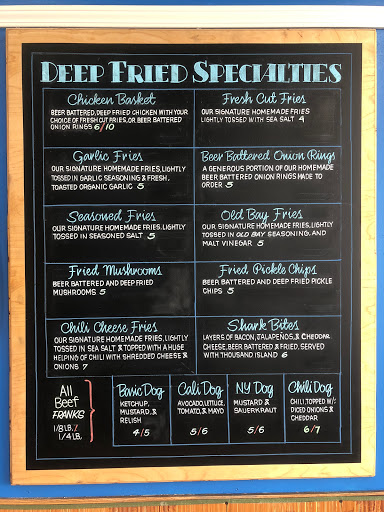 DEEP FRIED SPECIALTIES
Chicken Basket
BEER BATTERED, DEEP FRIED CHICKEN WITH YOUR
CHOICE OF FRESH CUT FRIES, OR BEER BATTERED
ONION RINGS 6/10
Fresh Cut Fries
OUR SIGNATURE HOMEMADE FRIES
LIGHTLY TOSSED WITH SEA SALT 4
Garlic Fries
OUR SIGNATURE HOMEMADE FRIES, LIGHTLY
TOSSED IN GARLIC SEASONING & FRESH,
TOASTED ORGANIC GARLIC 5
Beer Battered Onion Rings
A GENEROUS PORTION OF OUR HOMEMADE
BEER BATTERED ONION RINGS MADE TO
ORDER 5
Seasoned Fries
OUR SIGNATURE HOMEMADE FRIES, LIGHTLY
TOSSED IN SEASONED SALT 5
Old Bay Fries
OUR SIGNATURE HOMEMADE FRIES, LIGHTLY
TOSSED IN OLD BAY SEASONING, AND
MALT VINEGAR 5
Fried Mushrooms
BEER BATTERED AND DEEP FRIED
MUSHROOMS 5
Fried Pickle Chips
BEER BATTERED AND DEEP FRIED PICKLE
CHIPS 5
Chili Cheese Fries
OUR SIGNATURE HOMEMADE FRIES, LIGHTLY
TOSSED IN SEA SALT & TOPPED WITH A HUGE
HELPING OF CHILI WITH SHREDDED CHEESE &
ONIONS 7
Shark Bites
LAYERS OF BACON, JALAPEÑOS, & CHEDDAR
CHEESE, BEER BATTERED & FRIED. SERVED
WITH THOUSAND ISLAND 6
All
Beef
FRANKS
1/8 LB. /
1/4 LB.
Basic Dog
KETCHUP,
MUSTARD, &
RELISH
4/5
Cali Dog
AVOCADO, LETTUCE,
TOMATO, & MAYO
5/6
NY Dog
MUSTARD &
SAUERKRAUT
5/6
Chili Dog
CHILI, TOPPED W/:
DICED ONIONS &
CHEDDAR
6/7